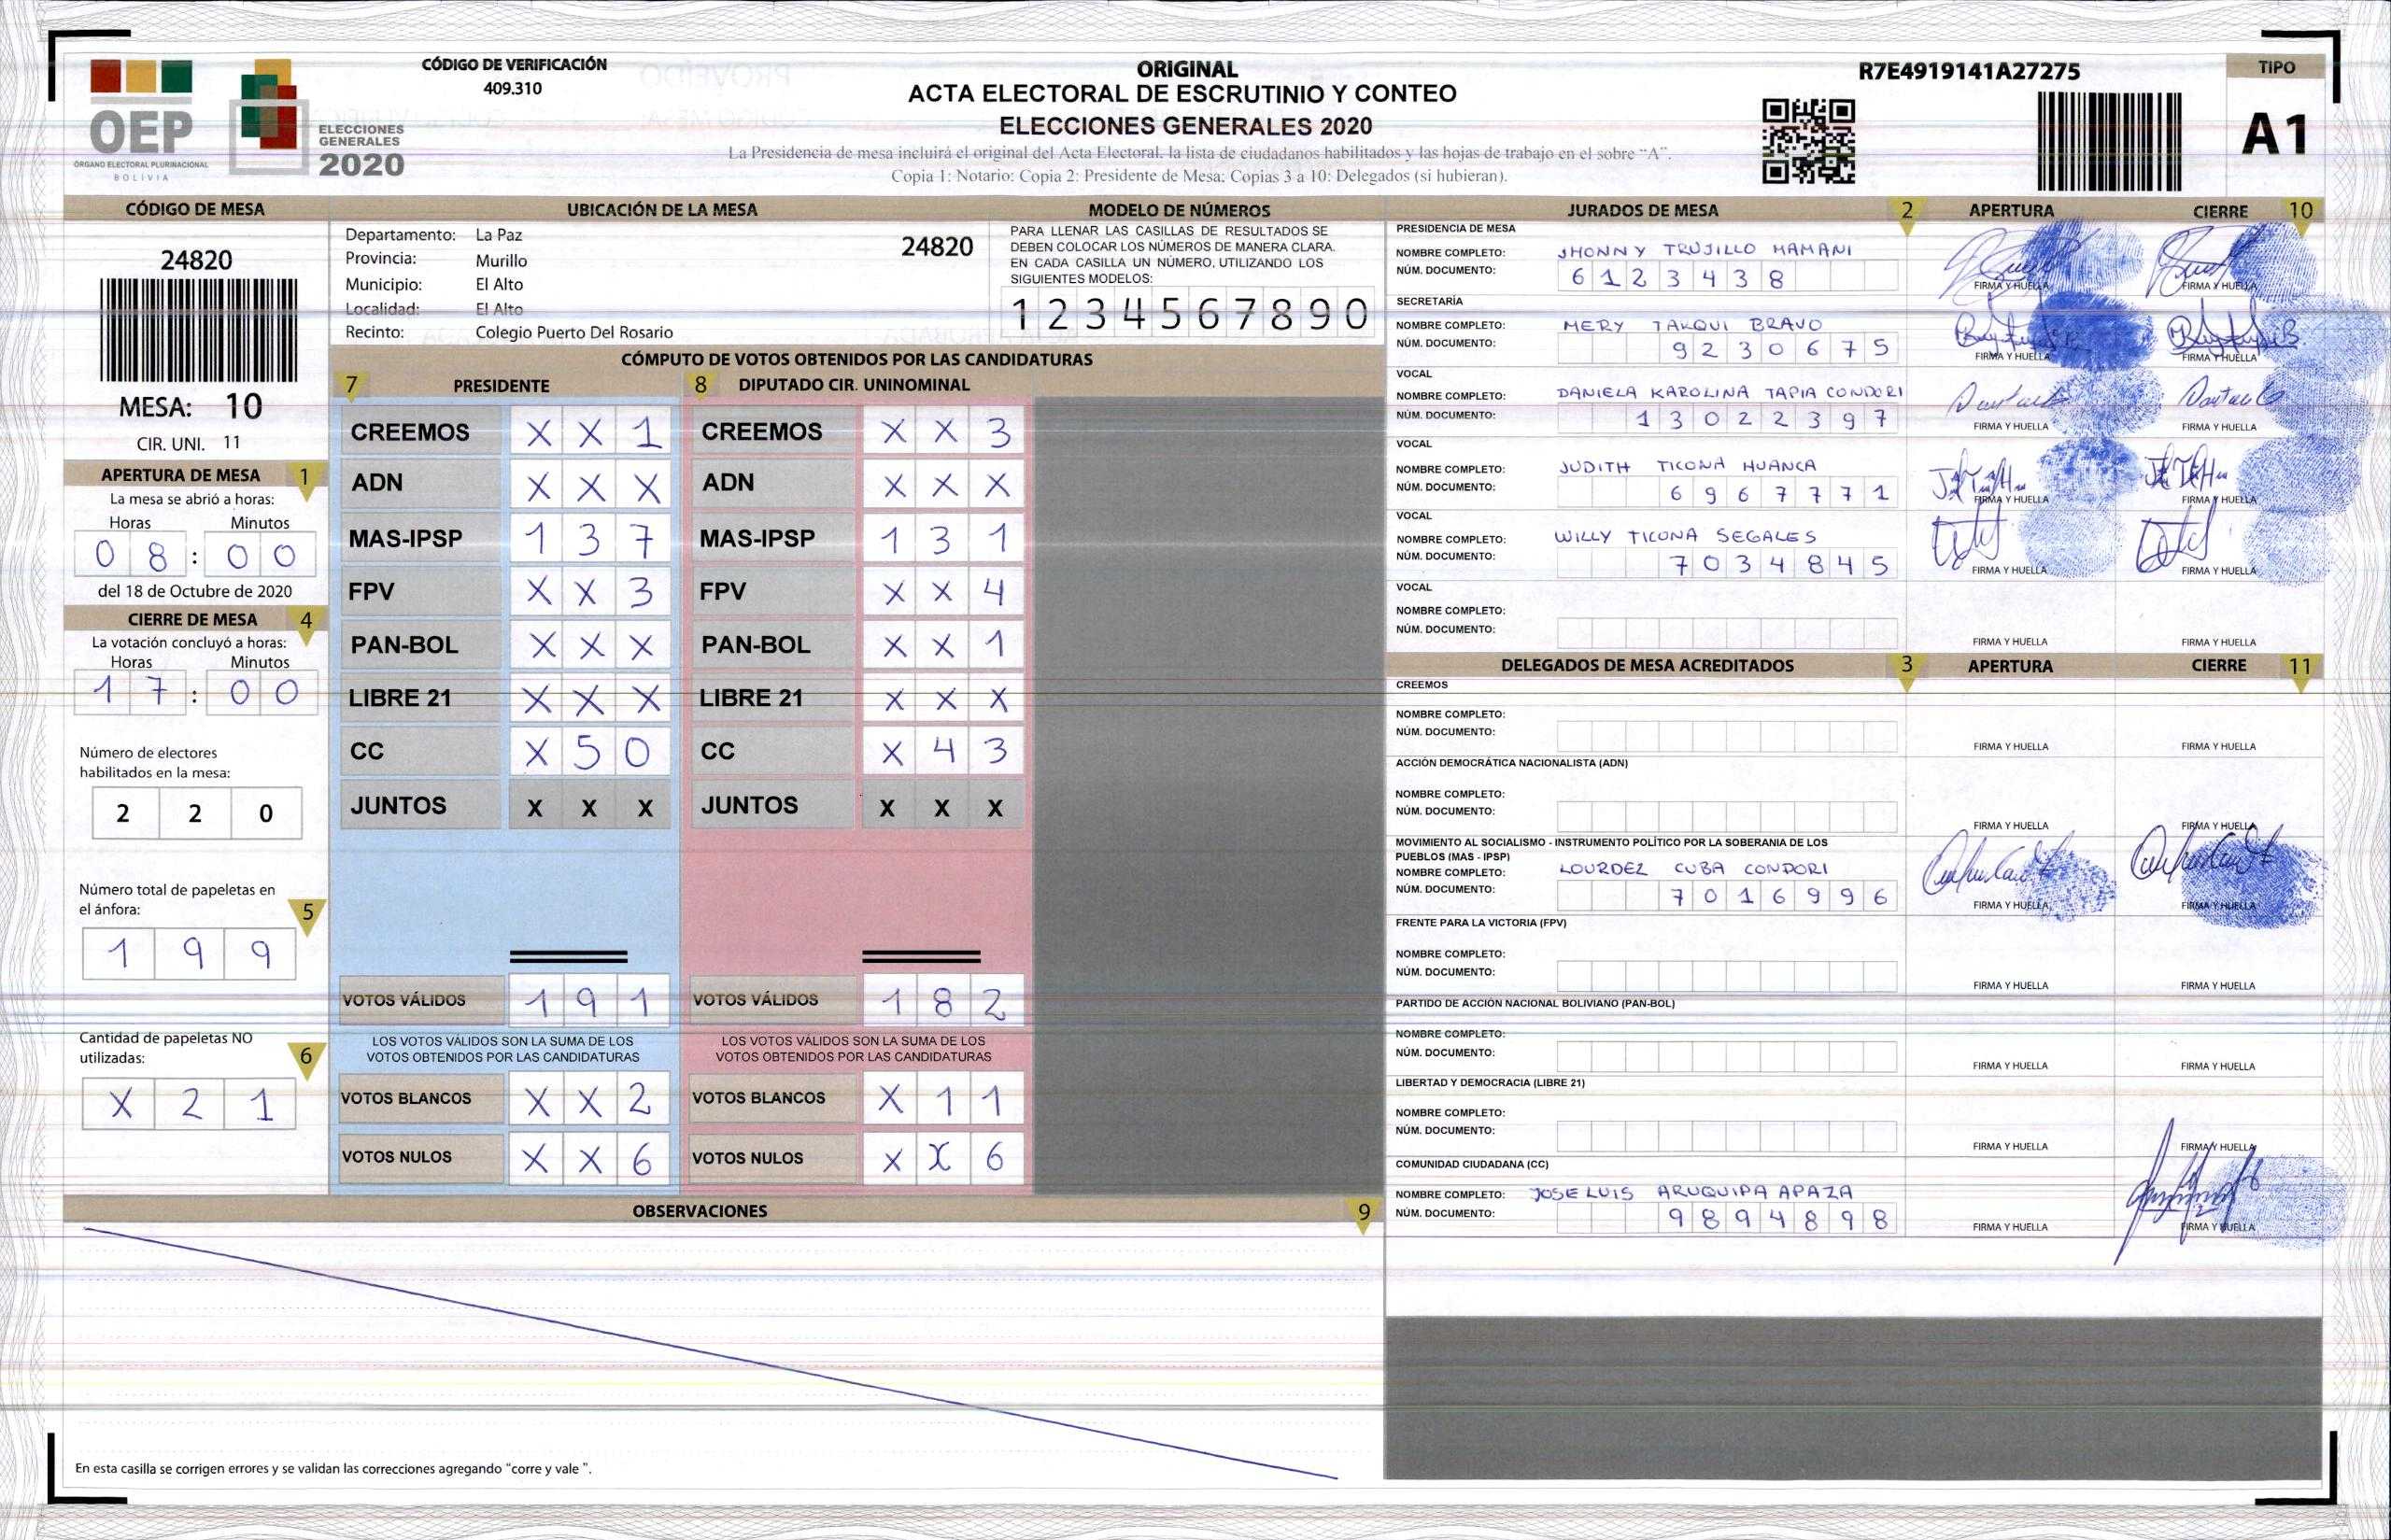 OEP
ÓRGANO ELECTORAL PLURINACIONAL
BOLIVIA
ELECCIONES
GENERALES
2020
CÓDIGO DE VERIFICACIÓN
409.310
ORIGINAL
ACTA ELECTORAL DE ESCRUTINIO Y CONTEO
ELECCIONES GENERALES 2020
La Presidencia de mesa incluirá el original del Acta Electoral, la lista de ciudadanos habilitados y las hojas de trabajo en el sobre "A".
Copia 1: Notario; Copia 2: Presidente de Mesa; Copias 3 a 10: Delegados (si hubieran).
R7E4919141A27275
TIPO
A1
CÓDIGO DE MESA
24820
MESA: 10
CIR. UNI. 11
APERTURA DE MESA 1
La mesa se abrió a horas:
Horas Minutos
0 8 : 0 0
del 18 de Octubre de 2020
CIERRE DE MESA 4
La votación concluyó a horas:
Horas Minutos
1 7 : 0 0
Número de electores
habilitados en la mesa:
2 2 0
Número total de papeletas en
el ánfora: 5
1 9 9
Cantidad de papeletas NO
utilizadas: 6
X 2 1
UBICACIÓN DE LA MESA
Departamento: La Paz
24820
Provincia: Murillo
Municipio: El Alto
Localidad: El Alto
Recinto: Colegio Puerto Del Rosario
MODELO DE NÚMEROS
PARA LLENAR LAS CASILLAS DE RESULTADOS SE
DEBEN COLOCAR LOS NÚMEROS DE MANERA CLARA.
EN CADA CASILLA UN NÚMERO, UTILIZANDO LOS
SIGUIENTES MODELOS:
1 2 3 4 5 6 7 8 9 0
CÓMPUTO DE VOTOS OBTENIDOS POR LAS CANDIDATURAS
7 PRESIDENTE 8 DIPUTADO CIR. UNINOMINAL
CREEMOS X X 1 CREEMOS X X 3
ADN X X X ADN X X X
MAS-IPSP 1 3 7 MAS-IPSP 1 3 1
FPV X X 3 FPV X X 4
PAN-BOL X X X PAN-BOL X X 1
LIBRE 21 X X X LIBRE 21 X X X
CC X 5 0 CC X 4 3
JUNTOS X X X JUNTOS X X X
VOTOS VÁLIDOS 1 9 1 VOTOS VÁLIDOS 1 8 2
LOS VOTOS VÁLIDOS SON LA SUMA DE LOS LOS VOTOS VÁLIDOS SON LA SUMA DE LOS
VOTOS OBTENIDOS POR LAS CANDIDATURAS VOTOS OBTENIDOS POR LAS CANDIDATURAS
VOTOS BLANCOS X X 2 VOTOS BLANCOS X 1 1
VOTOS NULOS X X 6 VOTOS NULOS X X 6
OBSERVACIONES 9
En esta casilla se corrigen errores y se validan las correcciones agregando "corre y vale ".
JURADOS DE MESA 2 APERTURA CIERRE 10
PRESIDENCIA DE MESA
NOMBRE COMPLETO: JHONNY TRUJILLO MAMANI
NÚM. DOCUMENTO: 6 1 2 3 4 3 8
FIRMA Y HUELLA FIRMA Y HUELLA
SECRETARÍA
NOMBRE COMPLETO: MERY TARQUI BRAVO
NÚM. DOCUMENTO: 9 2 3 0 6 7 5
FIRMA Y HUELLA FIRMA Y HUELLA
VOCAL
NOMBRE COMPLETO: DANIELA KAROLINA TAPIA CONDORI
NÚM. DOCUMENTO: 1 3 0 2 2 3 9 7
FIRMA Y HUELLA FIRMA Y HUELLA
VOCAL
NOMBRE COMPLETO: JUDITH TICONA HUANCA
NÚM. DOCUMENTO: 6 9 6 7 7 7 1
FIRMA Y HUELLA FIRMA Y HUELLA
VOCAL
NOMBRE COMPLETO: WILLY TICONA SEGALES
NÚM. DOCUMENTO: 7 0 3 4 8 4 5
FIRMA Y HUELLA FIRMA Y HUELLA
VOCAL
NOMBRE COMPLETO:
NÚM. DOCUMENTO:
FIRMA Y HUELLA FIRMA Y HUELLA
DELEGADOS DE MESA ACREDITADOS 3 APERTURA CIERRE 11
CREEMOS
NOMBRE COMPLETO:
NÚM. DOCUMENTO:
FIRMA Y HUELLA FIRMA Y HUELLA
ACCIÓN DEMOCRÁTICA NACIONALISTA (ADN)
NOMBRE COMPLETO:
NÚM. DOCUMENTO:
FIRMA Y HUELLA FIRMA Y HUELLA
MOVIMIENTO AL SOCIALISMO - INSTRUMENTO POLÍTICO POR LA SOBERANIA DE LOS
PUEBLOS (MAS - IPSP)
NOMBRE COMPLETO: LOURDEZ CUBA CONDORI
NÚM. DOCUMENTO: 7 0 1 6 9 9 6
FIRMA Y HUELLA FIRMA Y HUELLA
FRENTE PARA LA VICTORIA (FPV)
NOMBRE COMPLETO:
NÚM. DOCUMENTO:
FIRMA Y HUELLA FIRMA Y HUELLA
PARTIDO DE ACCIÓN NACIONAL BOLIVIANO (PAN-BOL)
NOMBRE COMPLETO:
NÚM. DOCUMENTO:
FIRMA Y HUELLA FIRMA Y HUELLA
LIBERTAD Y DEMOCRACIA (LIBRE 21)
NOMBRE COMPLETO:
NÚM. DOCUMENTO:
FIRMA Y HUELLA FIRMA Y HUELLA
COMUNIDAD CIUDADANA (CC)
NOMBRE COMPLETO: JOSE LUIS ARUQUIPA APAZA
NÚM. DOCUMENTO: 9 8 9 4 8 9 8
FIRMA Y HUELLA FIRMA Y HUELLA